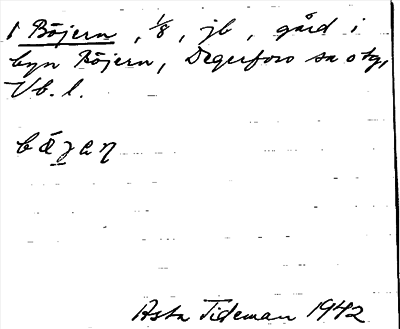 1 Böjern, 1/8, jb, gård i
byn Böjern, Degerfors sn o tg,
Vb. l.
Asta Tideman 1942